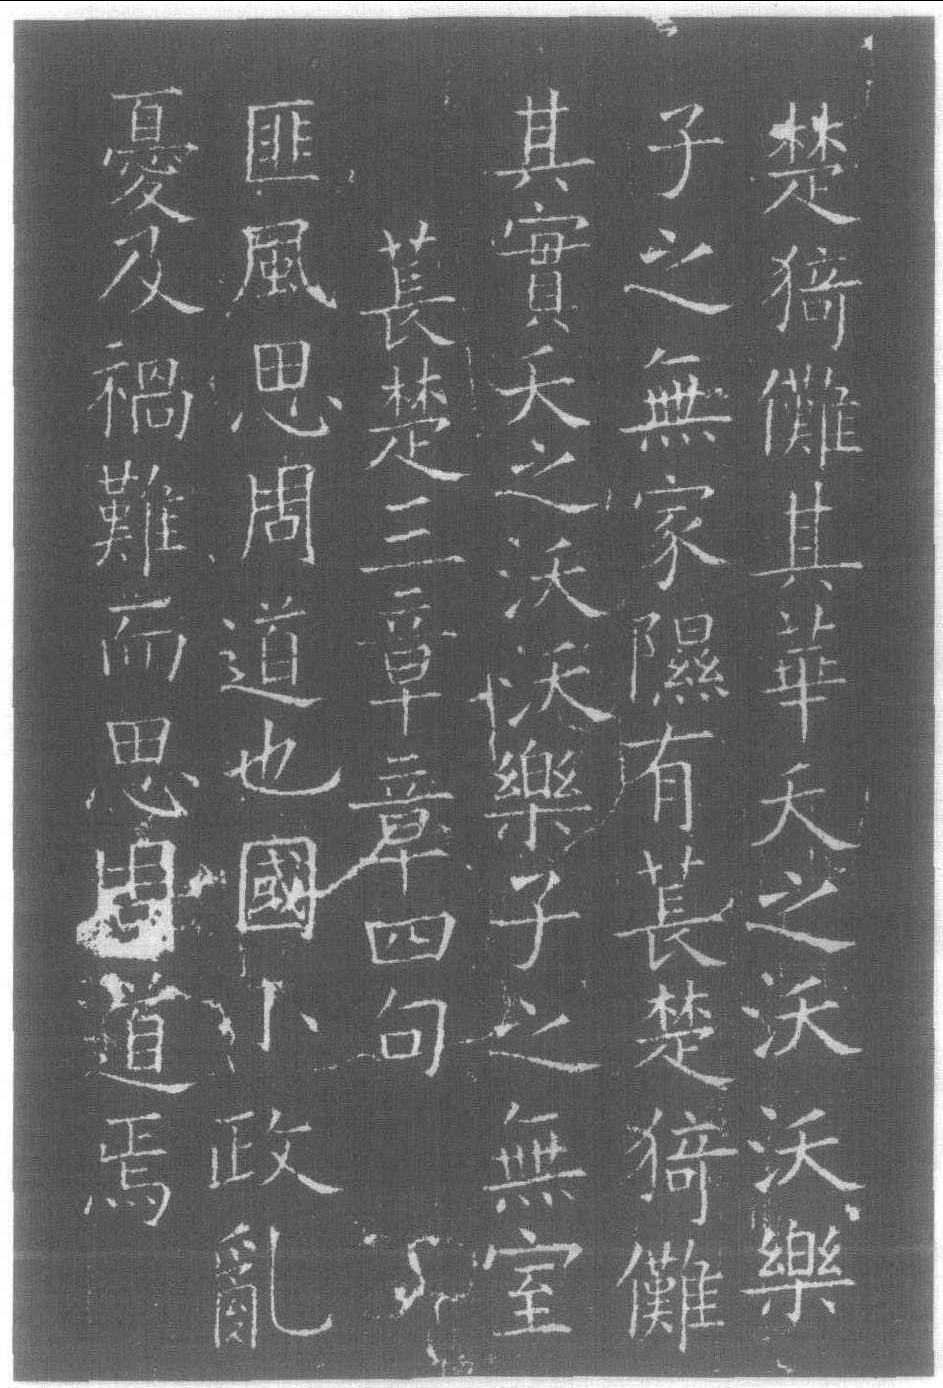 楚猗儺其華夭之沃沃樂
子之無家隰有萇楚猗儺
其實夭之沃沃樂子之無室
萇楚三章章四句
匪風思周道也國小政亂
憂及禍難而思周道焉